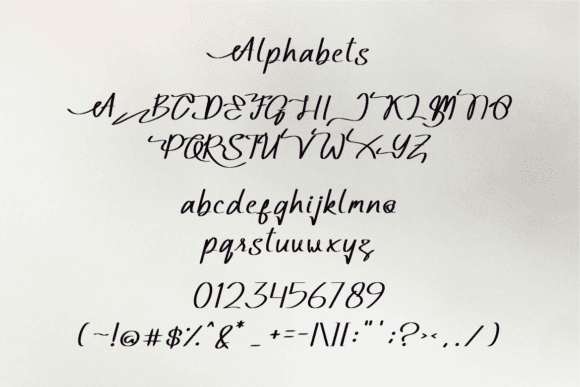 Alphabets
A BCDEFGHI J KLMNO
PQRSTUVWXYZ
abcdefghijklmno
pqrstuuwxyz
0123456789
(~!@#$%^&*_+=-|\][:"';?><,./)